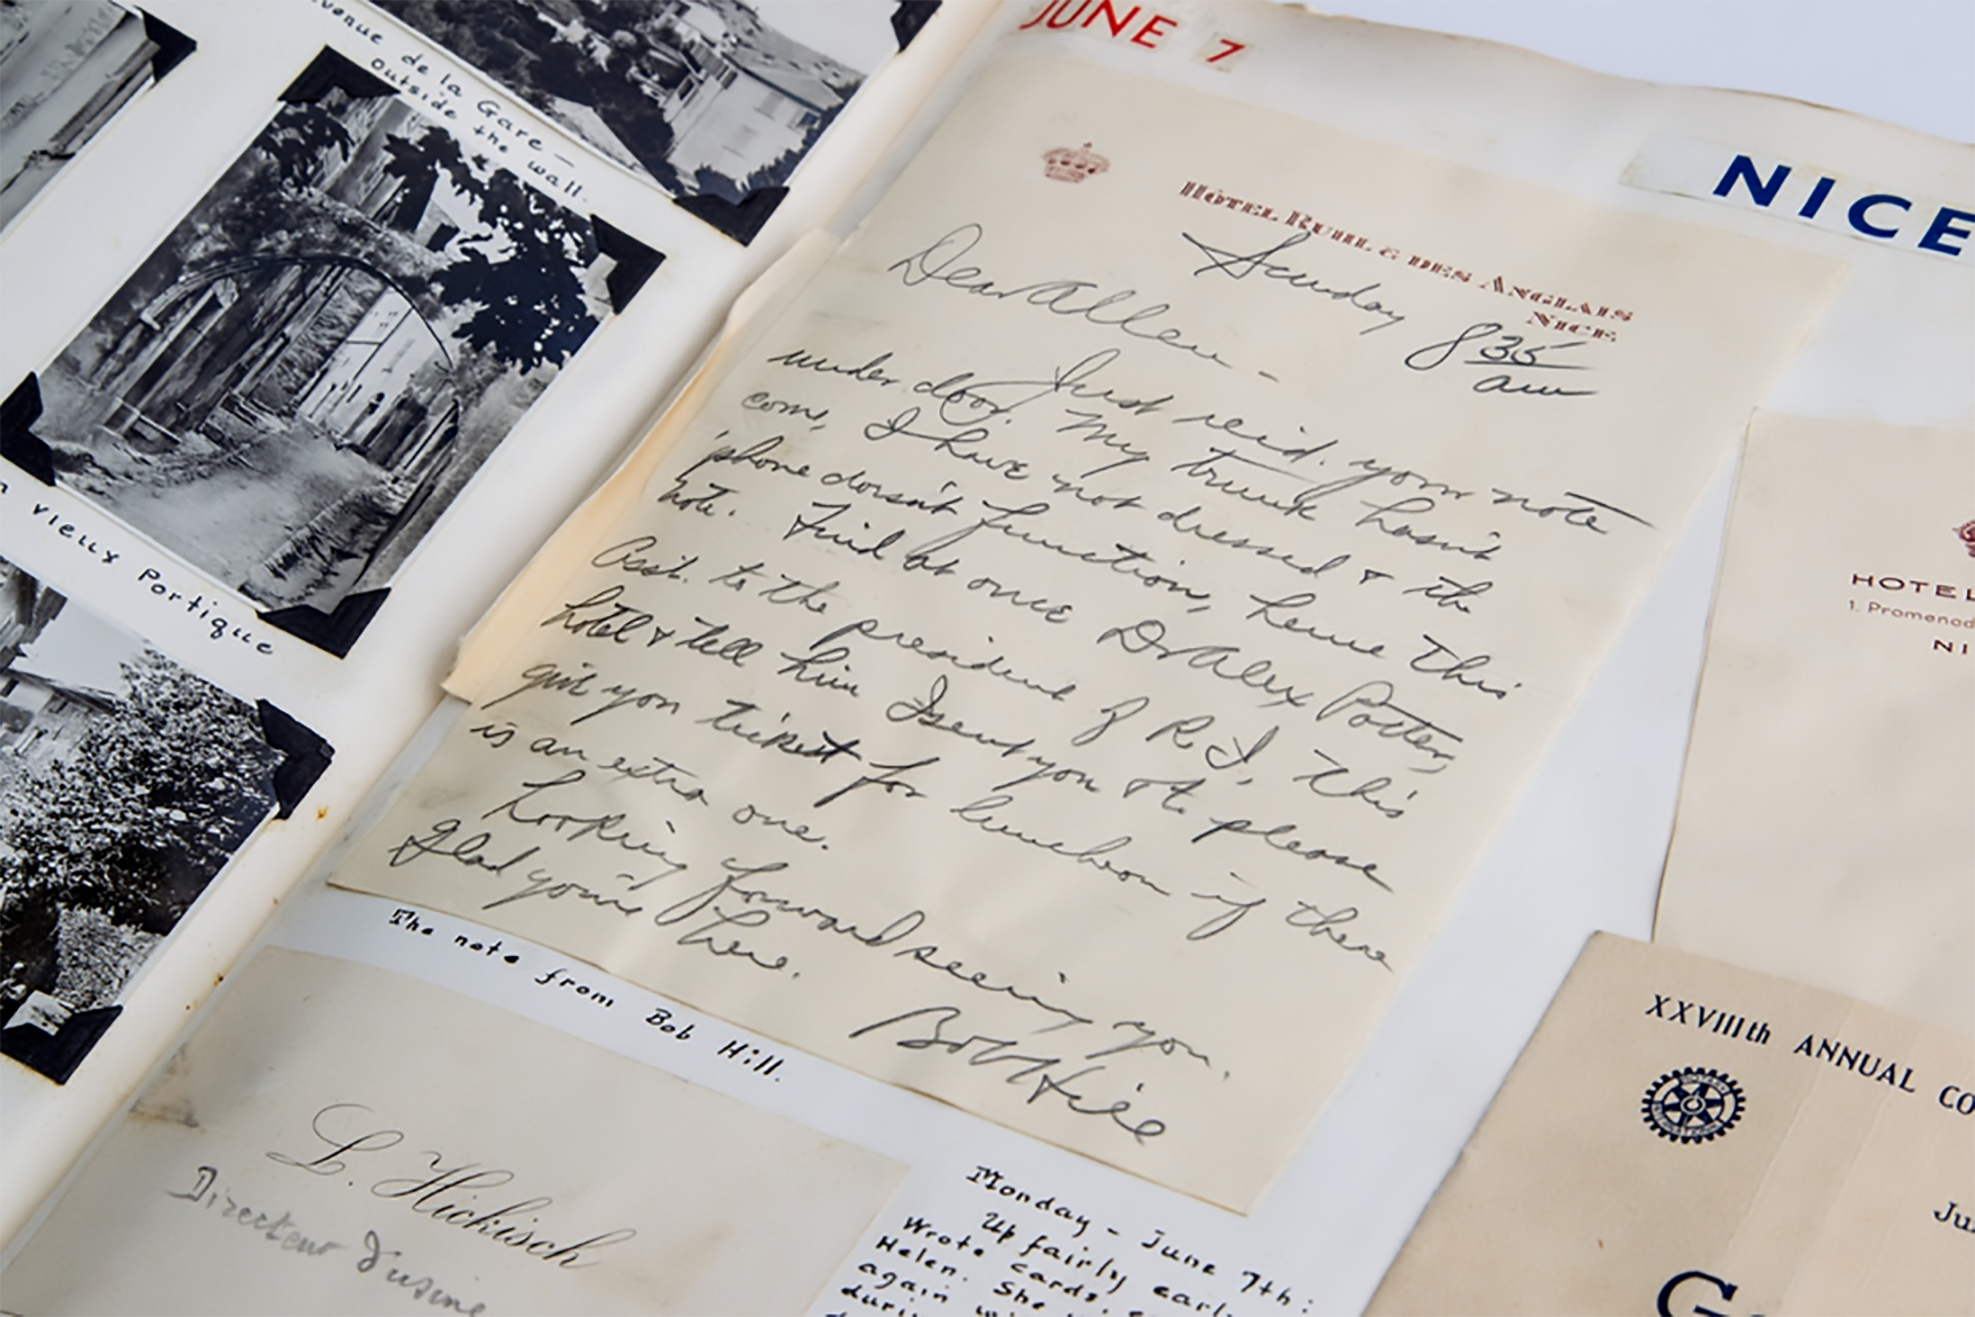 venue de la Gare —
Outside the wall.
vieux Portique
JUNE 7
NICE
HOTEL RUHL & DES ANGLAIS
NICE.
Sunday 8 35
am
Dear Allen -
Just rec'd. your note
under door. My trunk hasn't
come, I have not dressed & the
'phone doesn't function, hence this
note. Find at once Dr Alex Potter,
Asst. to the president of R.I, this
hotel & tell him I sent you & to please
give you ticket for luncheon if there
is an extra one.
Looking forward seeing you.
Glad you're here.
Bob Hill
The note from Bob Hill.
L. Hickisch
Directeur d'usine
Monday - June 7th:
Up fairly early
Wrote cards,
Helen. She
again
HOTEL
1. Promenad
NI
XXVIIIth ANNUAL CO